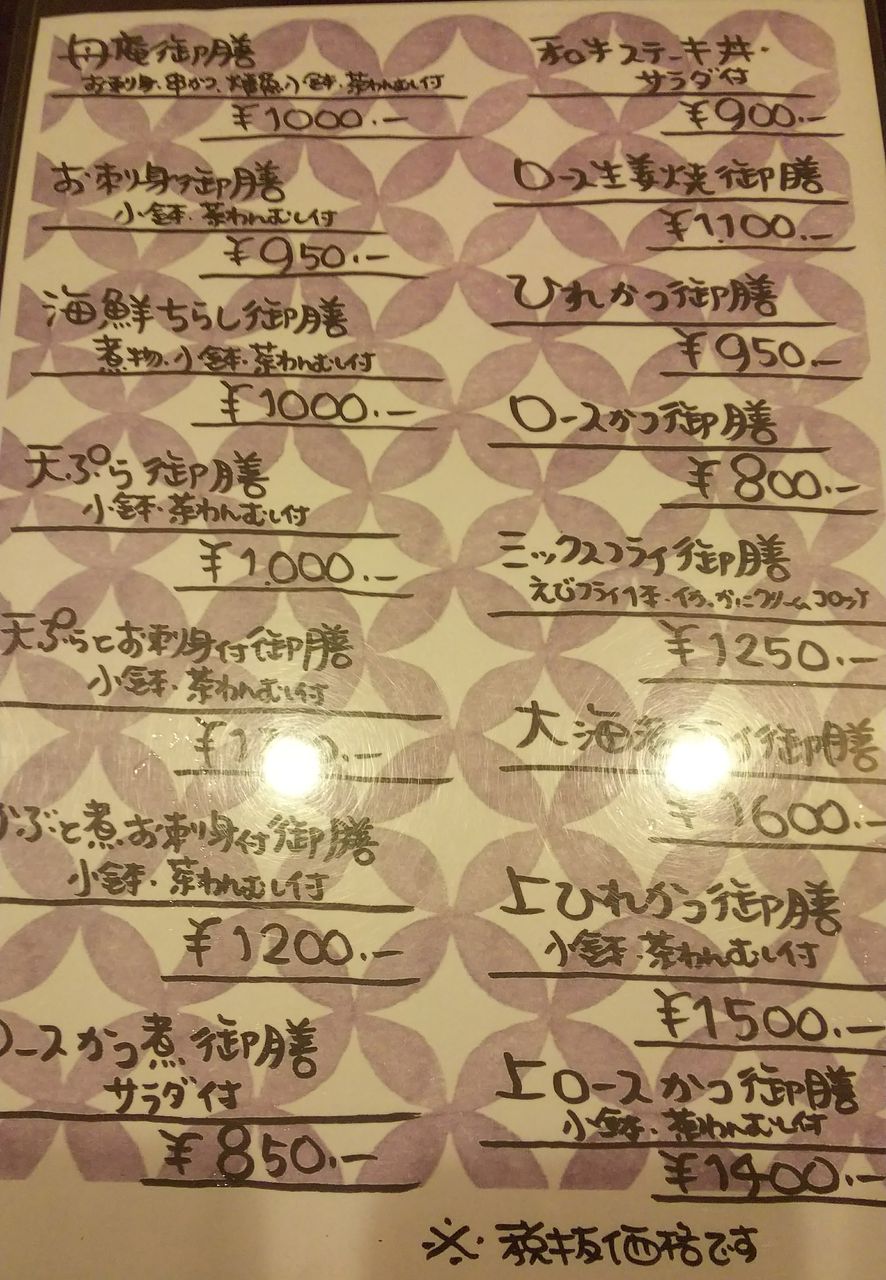 丹庵御膳
お刺身、串かつ、煮魚、小鉢、茶わんむし付
¥1000.-
お刺身御膳
小鉢・茶わんむし付
¥950.-
海鮮ちらし御膳
煮物、小鉢、茶わんむし付
¥1000.-
天ぷら御膳
小鉢・茶わんむし付
¥1.000.-
天ぷらとお刺身付御膳
小鉢・茶わんむし付
かぶと煮お刺身付御膳
小鉢・茶わんむし付
¥1200.-
ロースかつ煮御膳
サラダ付
¥850.-
和牛ステーキ丼・
サラダ付
¥900.-
ロース生姜焼御膳
¥1.100.-
ひれかつ御膳
¥950.-
ロースかつ御膳
¥800.-
ミックスフライ御膳
えびフライ1本・イカ、かにクリームコロッケ
¥1250.-
大海老 御膳
¥1600.-
上ひれかつ御膳
小鉢・茶わんむし付
¥1500.-
上ロースかつ御膳
小鉢・茶わんむし付
¥1400.-
※・税抜価格です